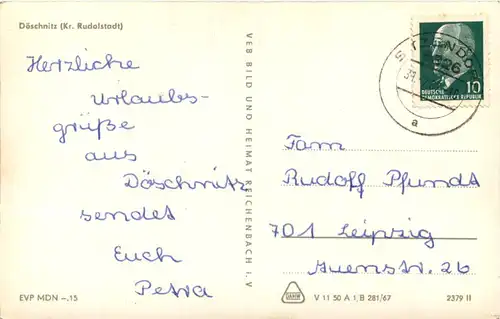 Döschnitz (Kr. Rudolstadt)
Herzliche
Urlaubs-
grüße
aus
Döschnitz
sendet
Euch
Petra
EVP MDN –.15
VEB BILD UND HEIMAT REICHENBACH I. V
DEUTSCHE
DEMOKRATISCHE REPUBLIK
10
a
Fam
Rudolf Pfundt
701 Leipzig
Auenstr. 26
V 11 50 A 1/B 281/67
2379 II